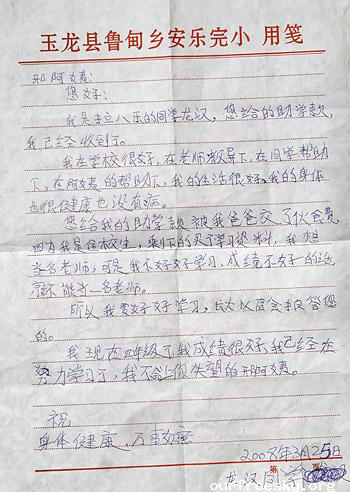 玉龙县鲁甸乡安乐完小 用笺
邢阿姨:
您好:
我是 八乐的同学龙汉,您给的助学款,
我已经收到了。
我在学校很好,在老师教导下,在同学帮助
下,在阿姨的帮助下,我的生活很好,我的身体
也很健康也没有病。
您给我的助学款被我爸爸交了伙食费,
因为我是住校生,剩下的买了学习资料,我想
当名老师,可是我不好好学习,成绩不好的话,
就不能当一名老师。
所以我要好好学习,长大以后会报答您
的。
我现在四年级了,我成绩很好,我已经在
努力学习了,我不会让您失望的邢阿姨。
祝
身体健康,万事如意
2008年3月25日
第 页
ourfreesky.org